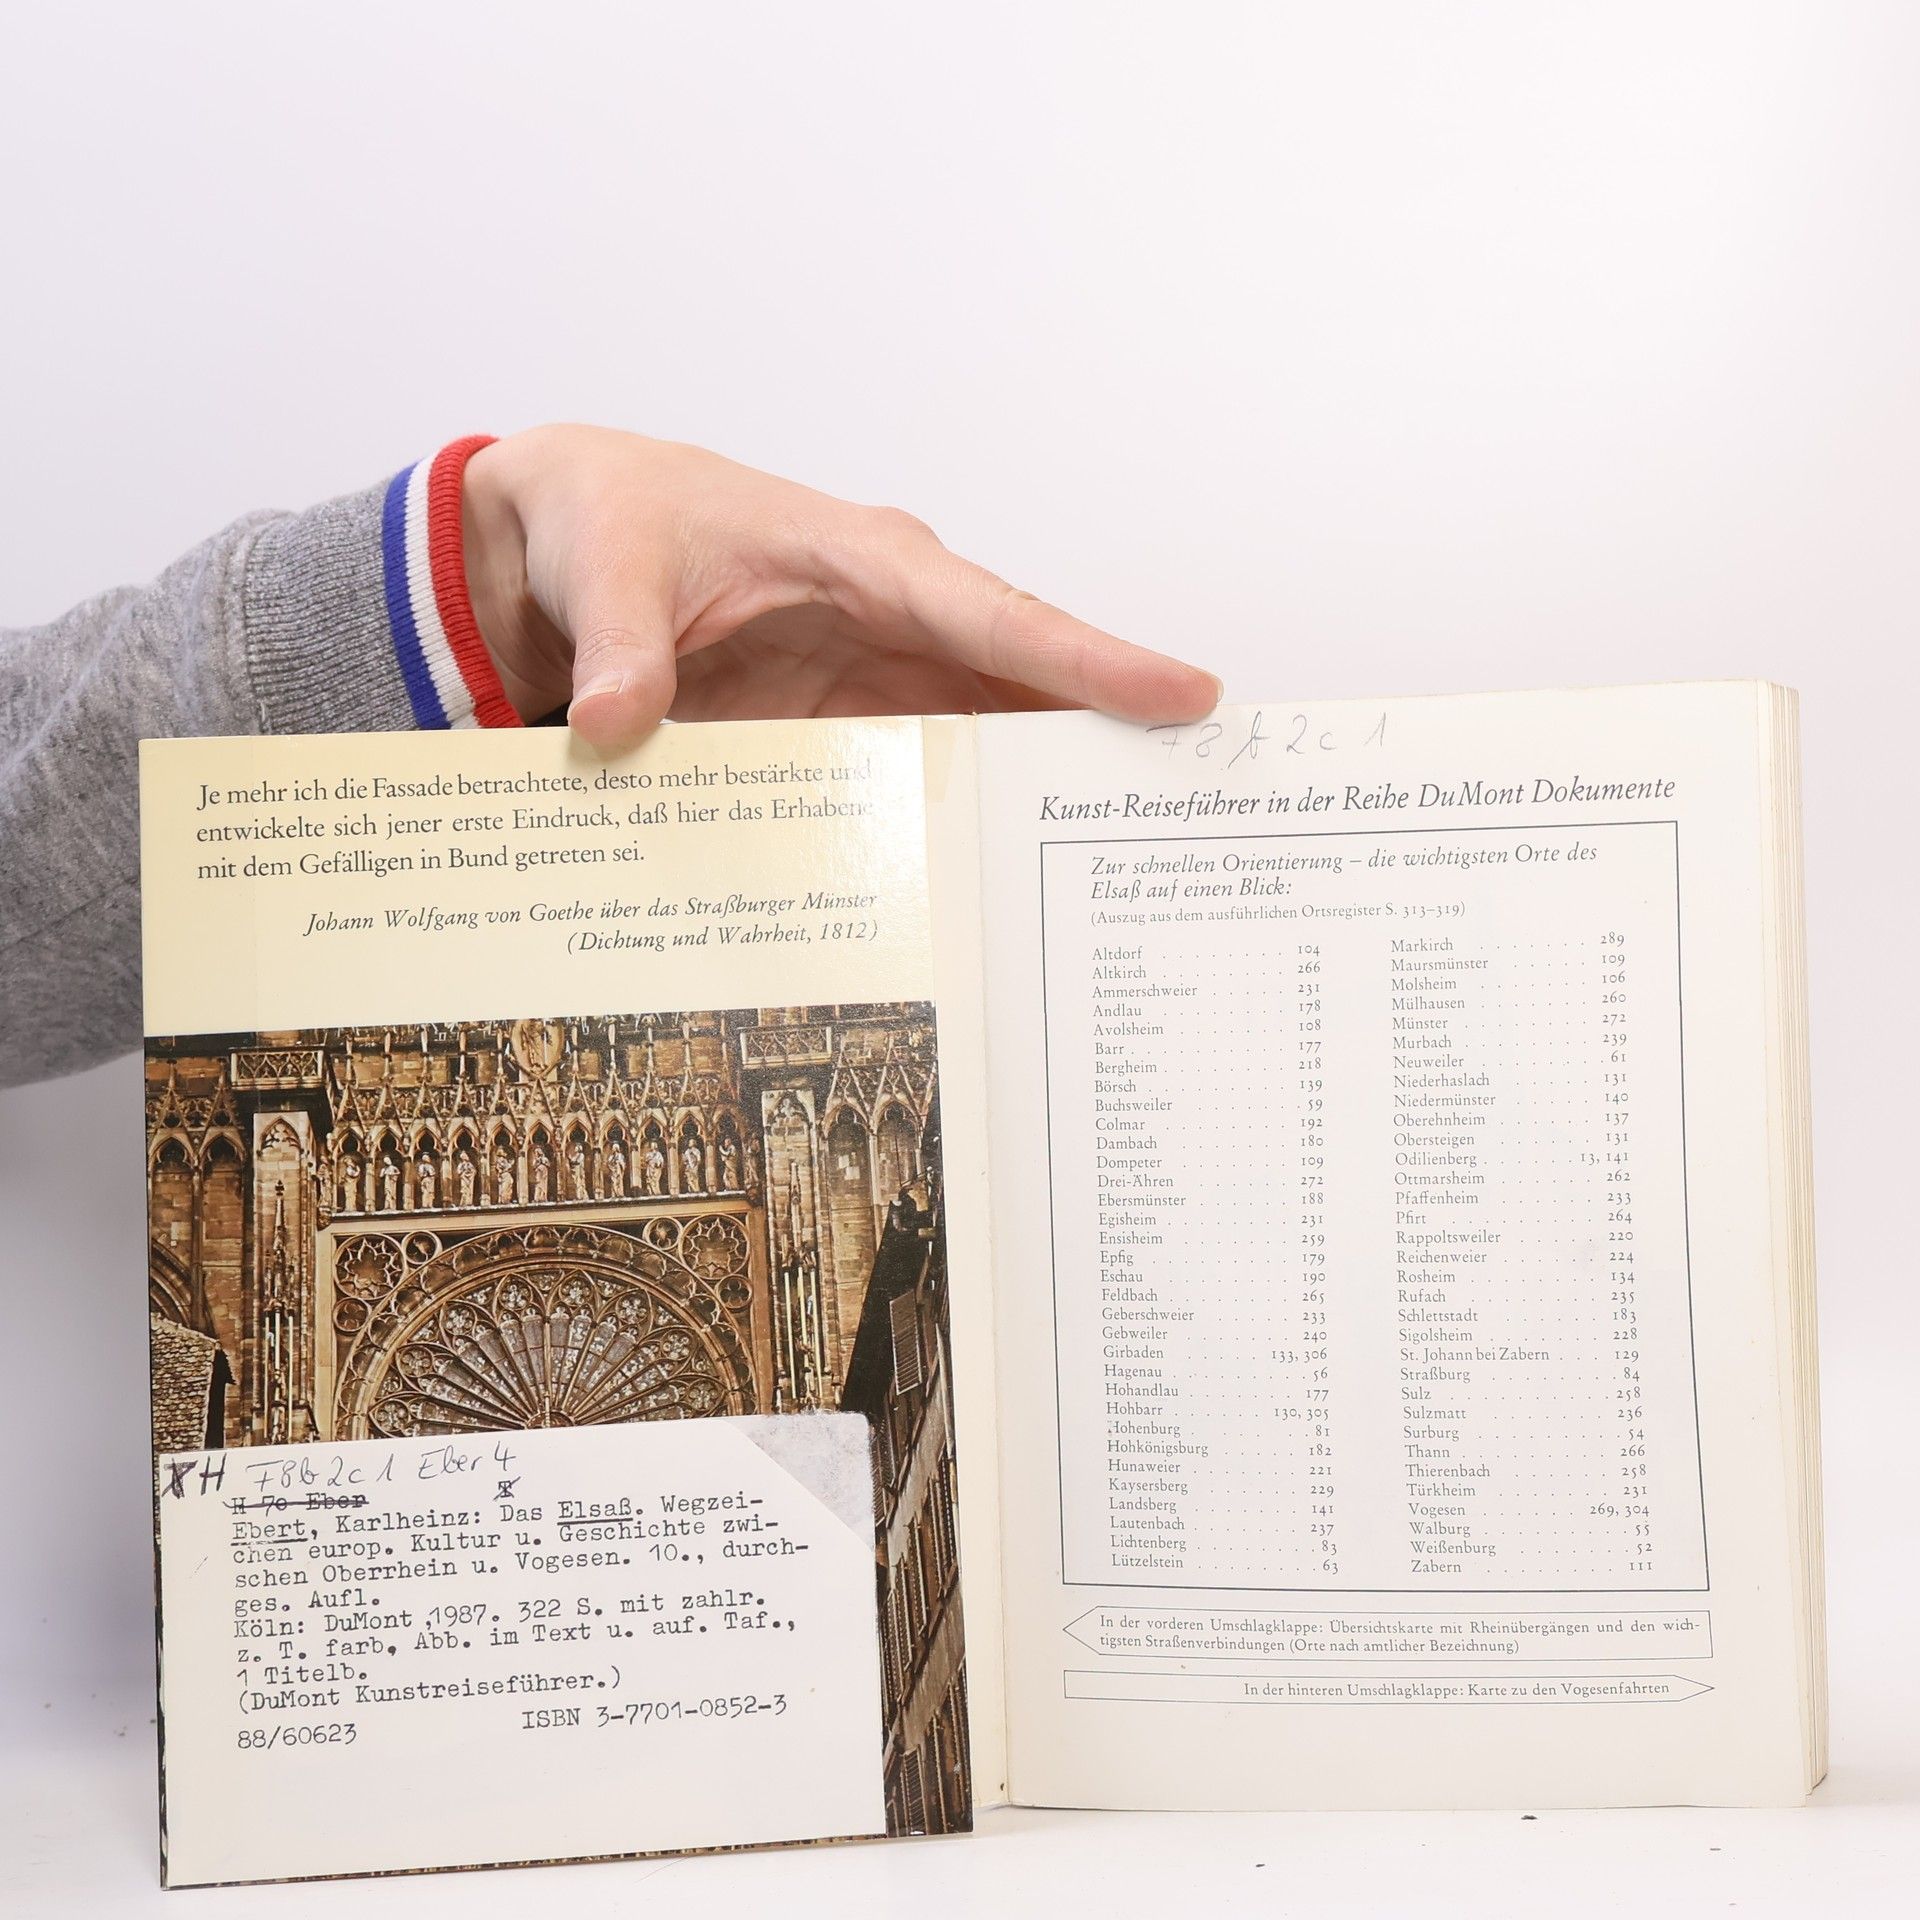 Je mehr ich die Fassade betrachtete, desto mehr bestärkte und
entwickelte sich jener erste Eindruck, daß hier das Erhabene
mit dem Gefälligen in Bund getreten sei.
Johann Wolfgang von Goethe über das Straßburger Münster
(Dichtung und Wahrheit, 1812)
H F8b 2c 1 Eber 4
H 70 Eber
Ebert, Karlheinz: Das Elsaß. Wegzei-
chen europ. Kultur u. Geschichte zwi-
schen Oberrhein u. Vogesen. 10., durch-
ges. Aufl.
Köln: DuMont ,1987. 322 S. mit zahlr.
z. T. farb. Abb. im Text u. auf. Taf.,
1 Titelb.
(DuMont Kunstreiseführer.)
88/60623 ISBN 3-7701-0852-3
F8b2c1
Kunst-Reiseführer in der Reihe DuMont Dokumente
Zur schnellen Orientierung – die wichtigsten Orte des
Elsaß auf einen Blick:
(Auszug aus dem ausführlichen Ortsregister S. 313–319)
Altdorf . . . . . . . . 104
Altkirch . . . . . . . 266
Ammerschweier . . . . . 231
Andlau . . . . . . . . 178
Avolsheim . . . . . . . 108
Barr . . . . . . . . . 177
Bergheim . . . . . . . 218
Börsch . . . . . . . . 139
Buchsweiler . . . . . . 59
Colmar . . . . . . . . 192
Dambach . . . . . . . 180
Dompeter . . . . . . . 109
Drei-Ähren . . . . . . 272
Ebersmünster . . . . . 188
Egisheim . . . . . . . 231
Ensisheim . . . . . . . 259
Epfig . . . . . . . . 179
Eschau . . . . . . . . 190
Feldbach . . . . . . . 265
Geberschweier . . . . . 233
Gebweiler . . . . . . . 240
Girbaden . . . . . 133, 306
Hagenau . . . . . . . . 56
Hohandlau . . . . . . . 177
Hohbarr . . . . . . 130, 305
Hohenburg . . . . . . . 81
Hohkönigsburg . . . . . 182
Hunaweier . . . . . . . 221
Kaysersberg . . . . . . 229
Landsberg . . . . . . . 141
Lautenbach . . . . . . 237
Lichtenberg . . . . . . 83
Lützelstein . . . . . . 63
Markirch . . . . . . . 289
Maursmünster . . . . . 109
Molsheim . . . . . . . 106
Mülhausen . . . . . . . 260
Münster . . . . . . . . 272
Murbach . . . . . . . . 239
Neuweiler . . . . . . . 61
Niederhaslach . . . . . 131
Niedermünster . . . . . 140
Oberehnheim . . . . . . 137
Obersteigen . . . . . . 131
Odilienberg . . . . . . 13, 141
Ottmarsheim . . . . . . 262
Pfaffenheim . . . . . . 233
Pfirt . . . . . . . . 264
Rappoltsweiler . . . . . 220
Reichenweier . . . . . . 224
Rosheim . . . . . . . . 134
Rufach . . . . . . . . 235
Schlettstadt . . . . . . 183
Sigolsheim . . . . . . . 228
St. Johann bei Zabern . . . 129
Straßburg . . . . . . . 84
Sulz . . . . . . . . . 258
Sulzmatt . . . . . . . 236
Surburg . . . . . . . . 54
Thann . . . . . . . . 266
Thierenbach . . . . . . 258
Türkheim . . . . . . . 231
Vogesen . . . . . . 269, 304
Walburg . . . . . . . . 55
Weißenburg . . . . . . . 52
Zabern . . . . . . . . 111
In der vorderen Umschlagklappe: Übersichtskarte mit Rheinübergängen und den wich-
tigsten Straßenverbindungen (Orte nach amtlicher Bezeichnung)
In der hinteren Umschlagklappe: Karte zu den Vogesenfahrten